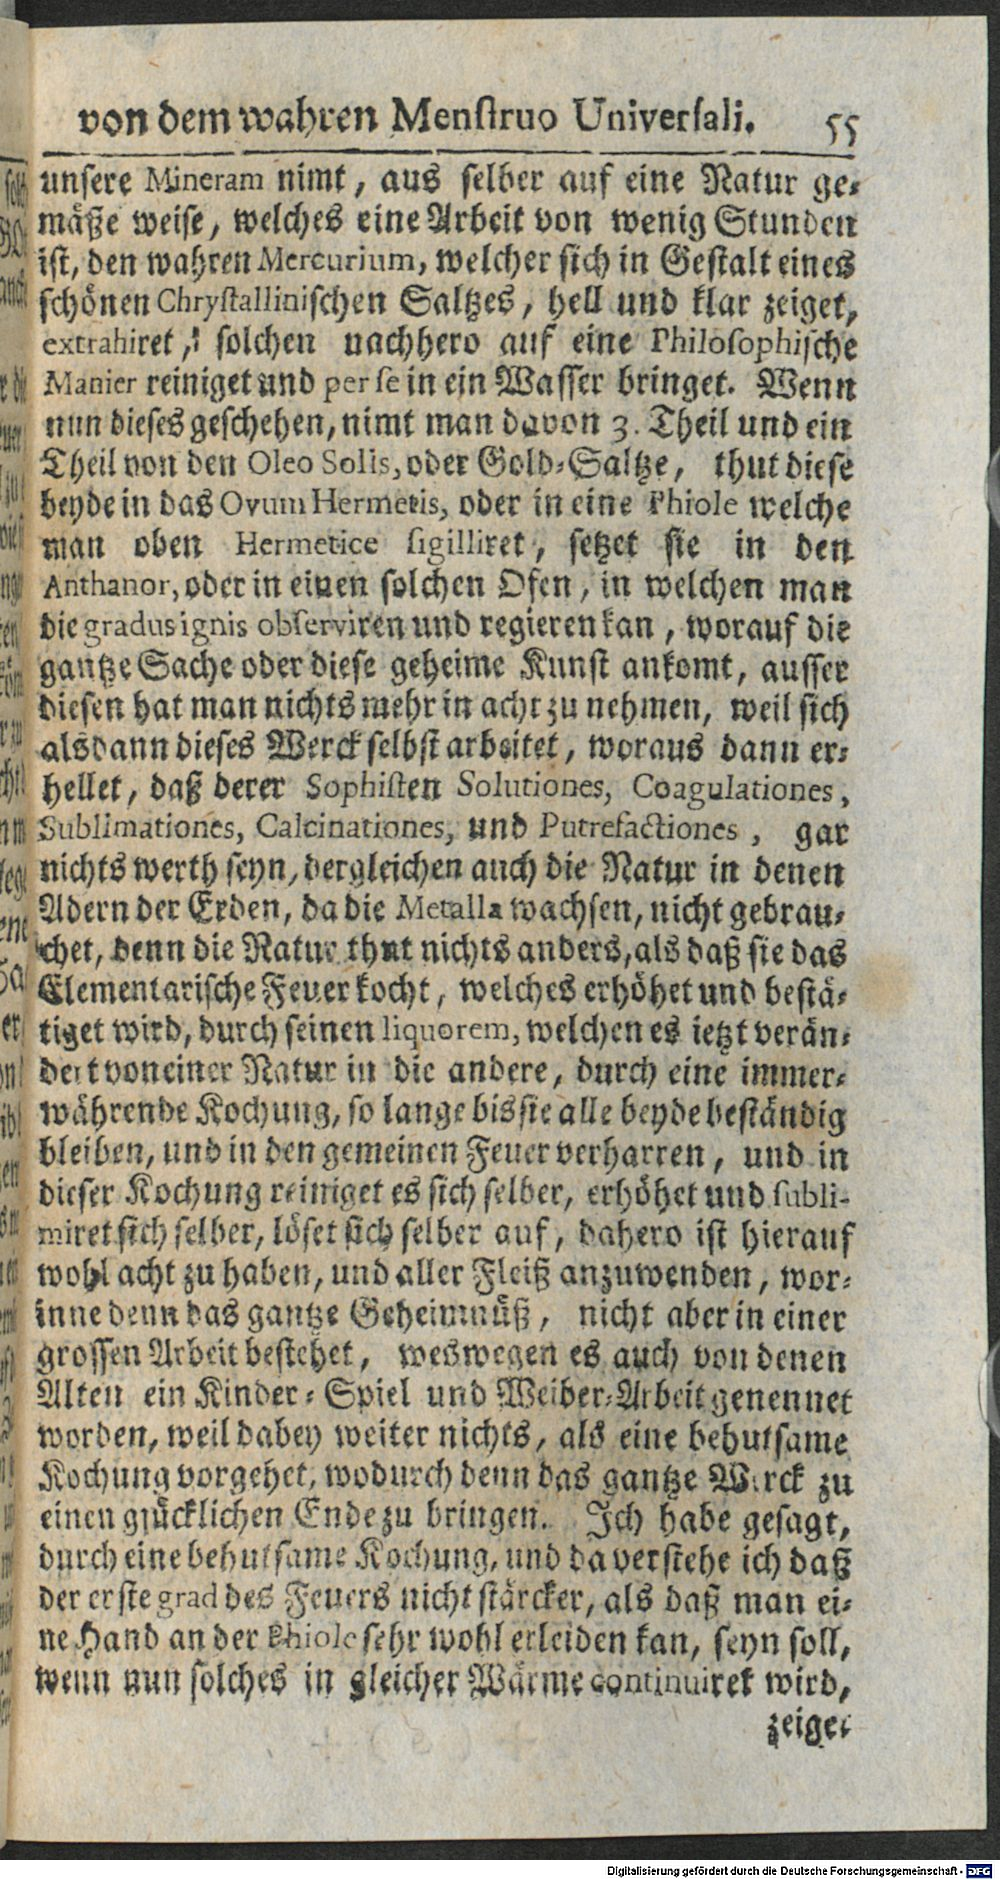 von dem wahren Menstruo Universali. 55
unsere Mineram nimt, aus selber auf eine Natur ge-
mäße weise, welches eine Arbeit von wenig Stunden
ist, den wahren Mercurium, welcher sich in Gestalt eines
schönen Chrystallinischen Saltzes, hell und klar zeiget,
extrahiret, solchen nachhero auf eine Philosophische
Manier reiniget und per se in ein Wasser bringet. Wenn
nun dieses geschehen, nimt man davon 3. Theil und ein
Theil von den Oleo Solis, oder Gold-Saltze, thut diese
beyde in das Ovum Hermetis, oder in eine Phiole welche
man oben Hermetice sigilliret, setzet sie in den
Anthanor, oder in einen solchen Ofen, in welchen man
die gradus ignis observiren und regieren kan, worauf die
gantze Sache oder diese geheime Kunst ankomt, ausser
diesen hat man nichts mehr in acht zu nehmen, weil sich
alsdann dieses Werck selbst arbeitet, woraus dann er-
hellet, daß derer Sophisten Solutiones, Coagulationes,
Sublimationes, Calcinationes, und Putrefactiones, gar
nichts werth seyn, dergleichen auch die Natur in denen
Adern der Erden, da die Metalla wachsen, nicht gebrau-
chet, denn die Natur thut nichts anders, als daß sie das
Elementarische Feuer kocht, welches erhöhet und bestä-
tiget wird, durch seinen liquorem, welchen es ietzt verän-
dert von einer Natur in die andere, durch eine immer-
währende Kochung, so lange bis sie alle beyde beständig
bleiben, und in den gemeinen Feuer verharren, und in
dieser Kochung reiniget es sich selber, erhöhet und subli-
miret sich selber, löset sich selber auf, dahero ist hierauf
wohl acht zu haben, und aller Fleiß anzuwenden, wor-
inne denn das gantze Geheimnüß, nicht aber in einer
grossen Arbeit bestehet, weswegen es auch von denen
Alten ein Kinder-Spiel und Weiber-Arbeit genennet
worden, weil dabey weiter nichts, als eine behutsame
Kochung vorgehet, wodurch denn das gantze Werck zu
einen glücklichen Ende zu bringen. Ich habe gesagt,
durch eine behutsame Kochung, und da verstehe ich daß
der erste grad des Feuers nicht stärcker, als daß man ei-
ne Hand an der Phiole sehr wohl erleiden kan, seyn soll,
wenn nun solches in gleicher Wärme continuiret wird,
zeiget
Digitalisierung gefördert durch die Deutsche Forschungsgemeinschaft - DFG